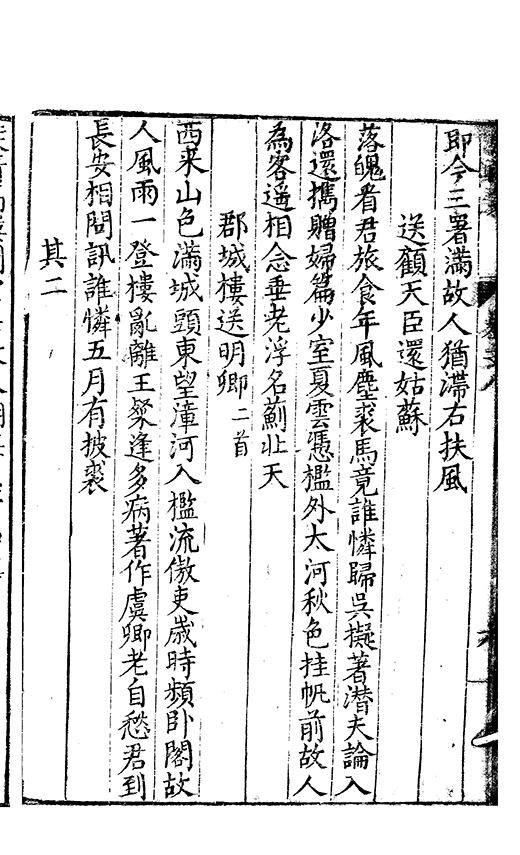 即今三署滿故人猶滯右扶風
送顧天臣還姑蘇
落魄看君旅食年風塵裘馬竟誰憐歸吳擬著潛夫論入
洛還攜贈婦篇少室夏雲憑檻外大河秋色挂帆前故人
為客遥相念垂老浮名薊北天
郡城樓送明卿二首
西来山色滿城頭東望漳河入檻流傲吏歲時頻卧閣故
人風雨一登樓亂離王粲逢多病著作虞卿老自愁君到
長安相問訊誰憐五月有披裘
其二